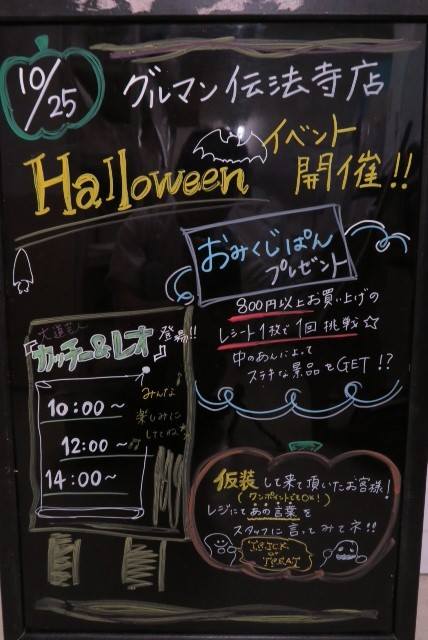 10/25
グルマン伝法寺店
Halloween
イベント
開催!!
おみくじぱん
プレゼント
800円以上お買い上げの
レシート1枚で1回挑戦☆
中のあんによって
ステキな景品をGET!?
大道芸人
『カッチー&レオ』登場!!
10:00~
12:00~
14:00~
みんな
楽しみに
してねっ
仮装して来て頂いたお客様!
(ワンポイントでもOK!)
レジにてあの言葉を
スタッフに言ってみてネ!!
TRICK
or
TREAT